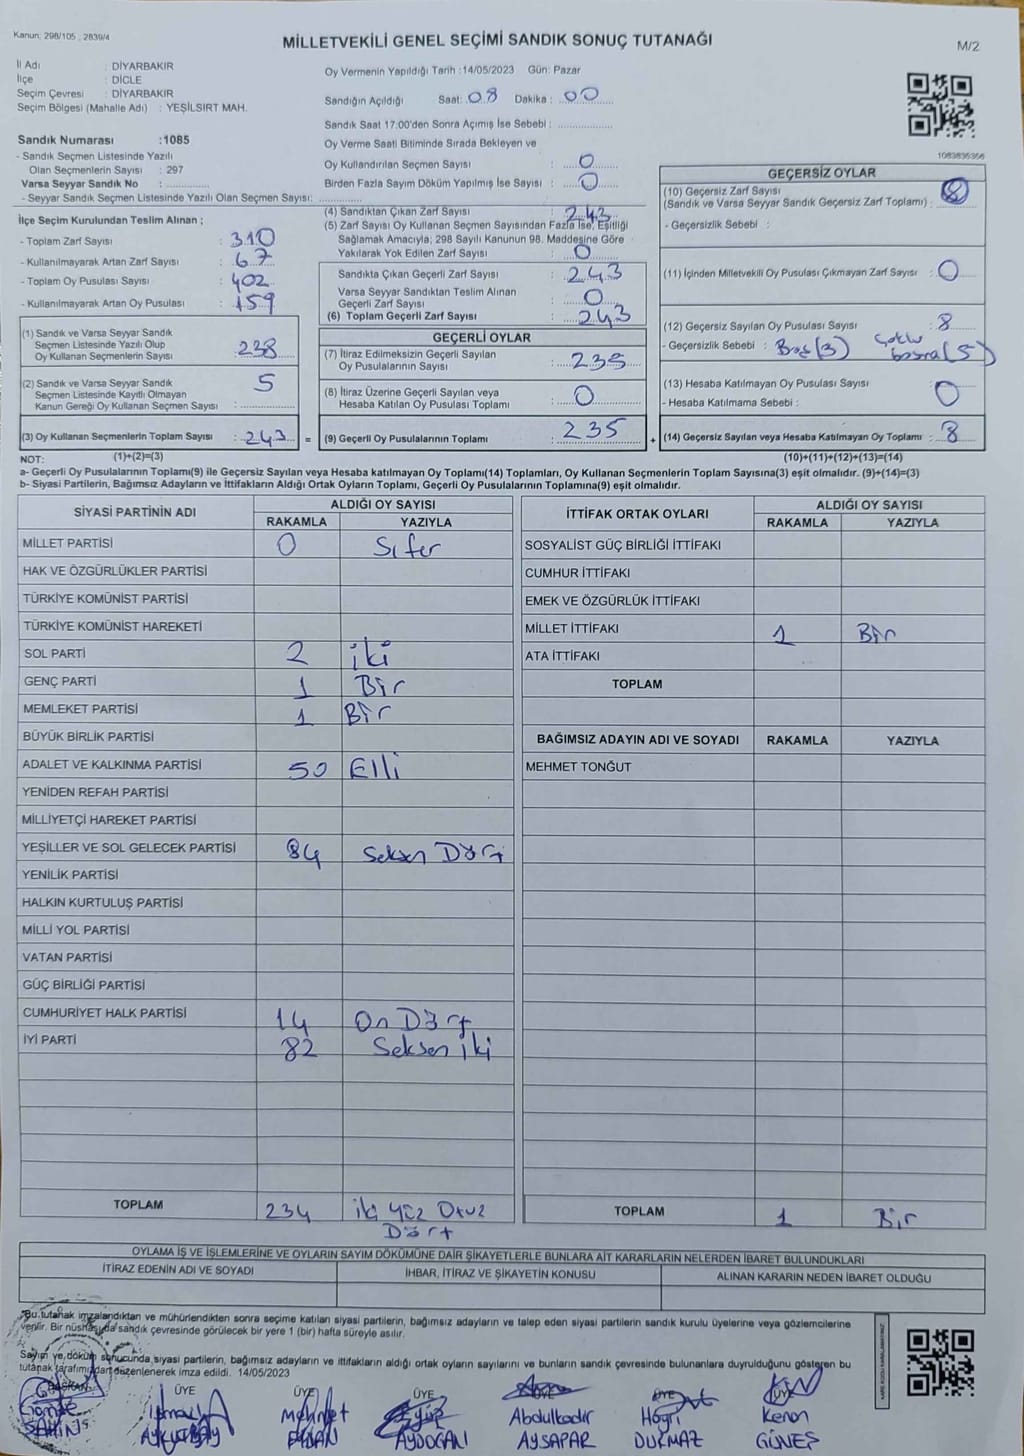 Kanun, 298/105 , 2839/4
MİLLETVEKİLİ GENEL SEÇİMİ SANDIK SONUÇ TUTANAĞI
M/2
İl Adı : DİYARBAKIR
İlçe : DİCLE
Seçim Çevresi : DİYARBAKIR
Seçim Bölgesi (Mahalle Adı) : YEŞİLSIRT MAH.
Sandık Numarası :1085
- Sandık Seçmen Listesinde Yazılı
Olan Seçmenlerin Sayısı : 297
Varsa Seyyar Sandık No :
- Seyyar Sandık Seçmen Listesinde Yazılı Olan Seçmen Sayısı:
Oy Vermenin Yapıldığı Tarih :14/05/2023 Gün: Pazar
Sandığın Açıldığı Saat: 08 Dakika : 00
Sandık Saat 17:00'den Sonra Açımış İse Sebebi :
Oy Verme Saati Bitiminde Sırada Bekleyen ve
Oy Kullandırılan Seçmen Sayısı : 0
Birden Fazla Sayım Döküm Yapılmış İse Sayısı : 0
1083835366
İlçe Seçim Kurulundan Teslim Alınan ;
- Toplam Zarf Sayısı : 310
- Kullanılmayarak Artan Zarf Sayısı : 67
- Toplam Oy Pusulası Sayısı : 402
- Kullanılmayarak Artan Oy Pusulası : 159
(1) Sandık ve Varsa Seyyar Sandık
Seçmen Listesinde Yazılı Olup
Oy Kullanan Seçmenlerin Sayısı : 238
(2) Sandık ve Varsa Seyyar Sandık
Seçmen Listesinde Kayıtlı Olmayan
Kanun Gereği Oy Kullanan Seçmen Sayısı : 5
(3) Oy Kullanan Seçmenlerin Toplam Sayısı : 243 =
(4) Sandıktan Çıkan Zarf Sayısı : 243
(5) Zarf Sayısı Oy Kullanan Seçmen Sayısından Fazla İse, Eşitliği
Sağlamak Amacıyla; 298 Sayılı Kanunun 98. Maddesine Göre
Yakılarak Yok Edilen Zarf Sayısı : 0
Sandıkta Çıkan Geçerli Zarf Sayısı : 243
Varsa Seyyar Sandıktan Teslim Alınan
Geçerli Zarf Sayısı : 0
(6) Toplam Geçerli Zarf Sayısı : 243
GEÇERLİ OYLAR
(7) İtiraz Edilmeksizin Geçerli Sayılan
Oy Pusulalarının Sayısı : 235
(8) İtiraz Üzerine Geçerli Sayılan veya
Hesaba Katılan Oy Pusulası Toplamı : 0
(9) Geçerli Oy Pusulalarının Toplamı : 235 +
GEÇERSİZ OYLAR
(10) Geçersiz Zarf Sayısı
(Sandık ve Varsa Seyyar Sandık Geçersiz Zarf Toplamı) :
- Geçersizlik Sebebi :
(11) İçinden Milletvekili Oy Pusulası Çıkmayan Zarf Sayısı : 0
(12) Geçersiz Sayılan Oy Pusulası Sayısı : 8
- Geçersizlik Sebebi : Boş (3) Çoklu
basma (5)
(13) Hesaba Katılmayan Oy Pusulası Sayısı : 0
- Hesaba Katılmama Sebebi :
(14) Geçersiz Sayılan veya Hesaba Katılmayan Oy Toplamı : 8
NOT: (1)+(2)=(3)
(10)+(11)+(12)+(13)=(14)
a- Geçerli Oy Pusulalarının Toplamı(9) ile Geçersiz Sayılan veya Hesaba katılmayan Oy Toplamı(14) Toplamları, Oy Kullanan Seçmenlerin Toplam Sayısına(3) eşit olmalıdır. (9)+(14)=(3)
b- Siyasi Partilerin, Bağımsız Adayların ve İttifakların Aldığı Ortak Oyların Toplamı, Geçerli Oy Pusulalarının Toplamına(9) eşit olmalıdır.
SİYASİ PARTİNİN ADI
ALDIĞI OY SAYISI
RAKAMLA YAZIYLA
MİLLET PARTİSİ 0 Sıfır
HAK VE ÖZGÜRLÜKLER PARTİSİ
TÜRKİYE KOMÜNİST PARTİSİ
TÜRKİYE KOMÜNİST HAREKETİ
SOL PARTİ 2 iki
GENÇ PARTİ 1 Bir
MEMLEKET PARTİSİ 1 Bir
BÜYÜK BİRLİK PARTİSİ
ADALET VE KALKINMA PARTİSİ 50 Elli
YENİDEN REFAH PARTİSİ
MİLLİYETÇİ HAREKET PARTİSİ
YEŞİLLER VE SOL GELECEK PARTİSİ 84 Seksen Dört
YENİLİK PARTİSİ
HALKIN KURTULUŞ PARTİSİ
MİLLİ YOL PARTİSİ
VATAN PARTİSİ
GÜÇ BİRLİĞİ PARTİSİ
CUMHURİYET HALK PARTİSİ 14 On Dört
İYİ PARTİ 82 Seksen iki
TOPLAM 234 iki yüz Otuz
Dört
İTTİFAK ORTAK OYLARI
ALDIĞI OY SAYISI
RAKAMLA YAZIYLA
SOSYALİST GÜÇ BİRLİĞİ İTTİFAKI
CUMHUR İTTİFAKI
EMEK VE ÖZGÜRLÜK İTTİFAKI
MİLLET İTTİFAKI 1 Bir
ATA İTTİFAKI
TOPLAM
BAĞIMSIZ ADAYIN ADI VE SOYADI RAKAMLA YAZIYLA
MEHMET TONĞUT
TOPLAM 1 Bir
OYLAMA İŞ VE İŞLEMLERİNE VE OYLARIN SAYIM DÖKÜMÜNE DAİR ŞİKAYETLERLE BUNLARA AİT KARARLARIN NELERDEN İBARET BULUNDUKLARI
İTİRAZ EDENİN ADI VE SOYADI
İHBAR, İTİRAZ VE ŞİKAYETİN KONUSU
ALINAN KARARIN NEDEN İBARET OLDUĞU
"Bu tutanak imzalandıktan ve mühürlendikten sonra seçime katılan siyasi partilerin, bağımsız adayların ve talep eden siyasi partilerin sandık kurulu üyelerine veya gözlemcilerine
verilir. Bir nüshası da sandık çevresinde görülecek bir yere 1 (bir) hafta süreyle asılır.
Sayım ve döküm sonucunda siyasi partilerin, bağımsız adayların ve ittifakların aldığı ortak oyların sayılarını ve bunların sandık çevresinde bulunanlara duyrulduğunu gösteren bu
tutanak tarafımızdan düzenlenerek imza edildi. 14/05/2023
BAŞKAN ÜYE ÜYE ÜYE ÜYE ÜYE ÜYE
ŞAHİN
İsmail
Mehmet
Eyüp AYDOĞAN
Abdulkadir AYSAPAR
Hayri DURMAZ
Kenan GÜNEŞ